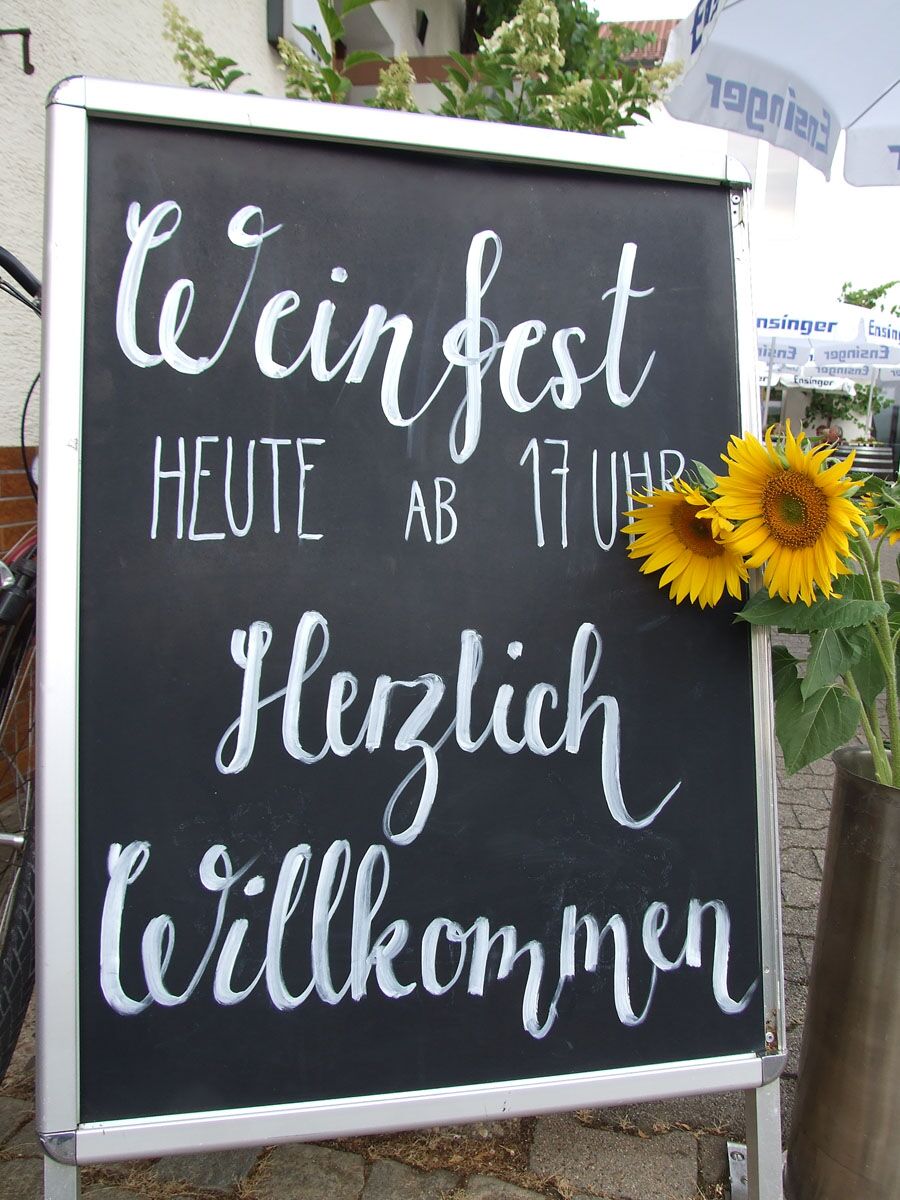 Ensinger
Ensinger
Weinfest
HEUTE AB 17 UHR
Herzlich
Willkommen
nsinger
Ensin
Ensinger
Ensinger
Ensinger